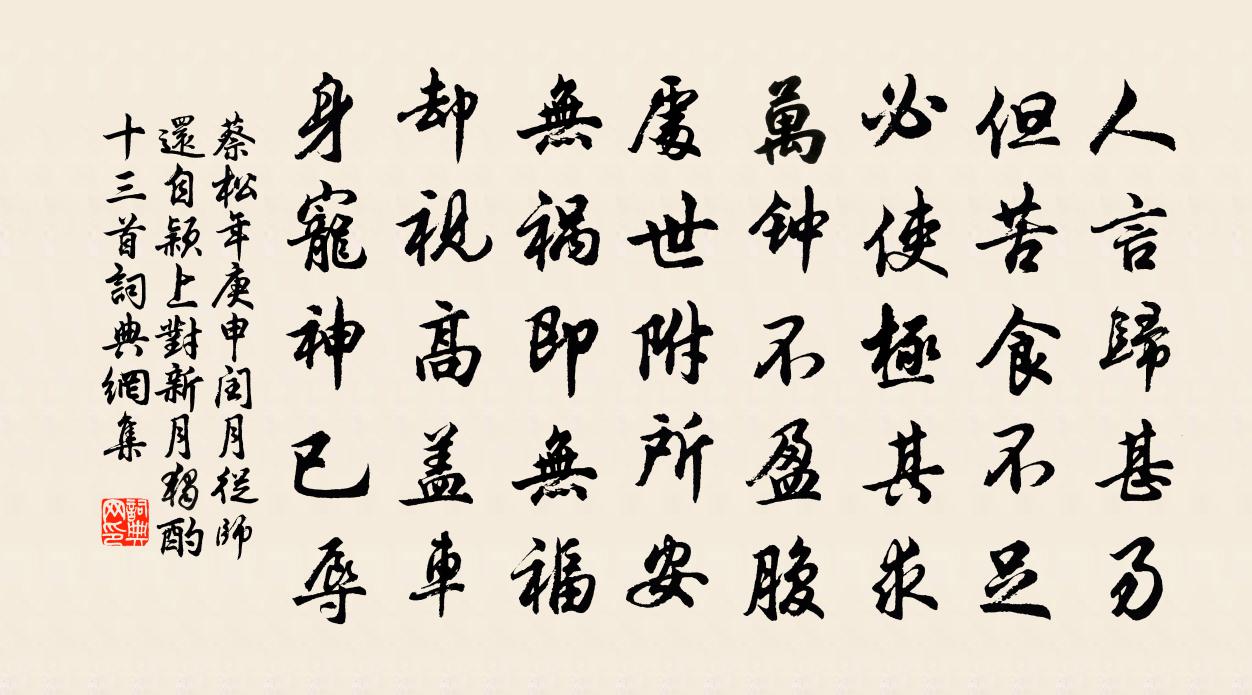 人言歸甚易
但苦食不足
必使極其求
萬钟不盈腹
處世附所安
無祸即無福
却視高盖車
身寵神已辱
蔡松年庚申闰月從師
還自颍上對新月獨酌
十三首詞典網集
詞典
网印